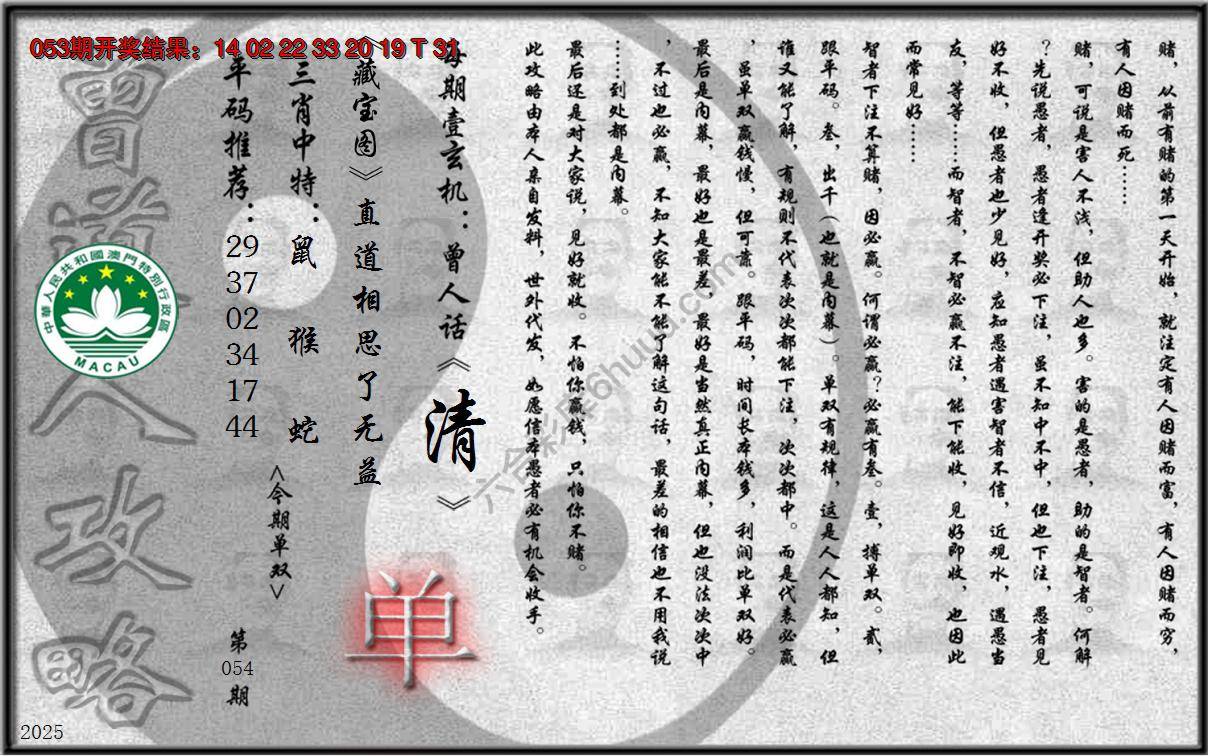 053期开奖结果：14 02 22 33 20 19 T 31
赌，从前有赌的第一天开始，就注定有人因赌而富，有人因赌而穷，
有人因赌而死……
赌，可说是害人不浅，但助人也多。害的是愚者，助的是智者。何解
？先说愚者，愚者逢开奖必下注，虽不知中不中，但也下注，愚者见
好不收，但愚者也少见好，应知愚者遇害智者不信，近观水，遇愚当
友，等等……而智者，不智必赢不注，能下能收，见好即收，也因此
而常见好……
智者下注不算赌，因必赢。何谓必赢？必赢有叁。壹，搏单双。贰，
跟平码。叁，出千（也就是内幕）。单双有规律，这是人人都知，但
谁又能了解，有规则不代表次次都能下注，次次都中。而是代表必赢
，虽单双赢钱慢，但可靠。跟平码，时间长本钱多，利润比单双好。
最后是内幕，最好也是最差，最好是当然真正内幕，但也没法次次中
，不过也必赢，不知大家能不能了解这句话，最差的相信也不用我说
……到处都是内幕。
最后还是对大家说，见好就收。不怕你赢钱，只怕你不赌。
此攻略由本人亲自发料，世外代发，如愿信本愚者必有机会收手。
每期壹玄机：曾人话《清》
《藏宝图》直道相思了无益
单
三肖中特：鼠 猴 蛇
<今期单双>
平码推荐：29 37 02 34 17 44
第054期
曾道人攻略
中華人民共和國澳門特別行政區
MACAU
六合彩库6huuu.com
2025